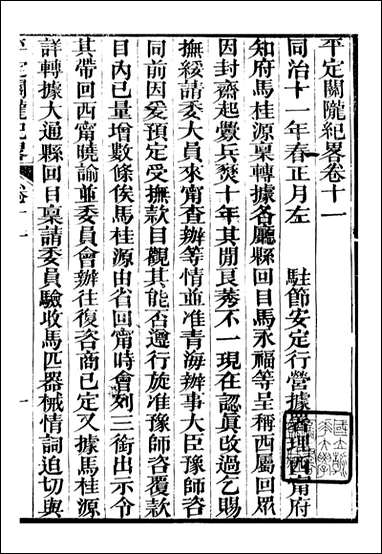 平定關隴紀畧卷十一
同治十一年春正月左　　駐節安定行營據署理西甯府
知府馬桂源稟轉據各廳縣回目馬永福等呈稱西屬回眾
因封齋起釁兵燹十年其閒良莠不一現在認眞改過乞賜
撫綏請委大員來甯查辦等情並准靑海辦事大臣豫師咨
同前因爰預定受撫款目觀其能否遵行旋准豫師咨覆款
目內已量增數條俟馬桂源由省回甯時會列三銜出示令
其帶回西甯曉諭並委員會辦往復咨商已定又據馬桂源
詳轉據大通縣回目稟請委員驗收馬匹器械情詞迫切與
平定關隴紀畧
卷十一
一